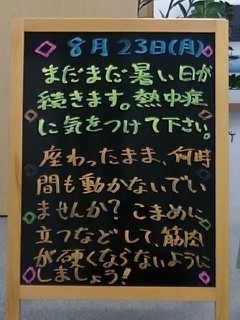 8月23日(月)
まだまだ暑い日が
続きます。熱中症
に気をつけて下さい。
座わったまま、何時
間も動かないでい
ませんか？こまめに
立つなどして、筋肉
が硬くならないように
しましょう！